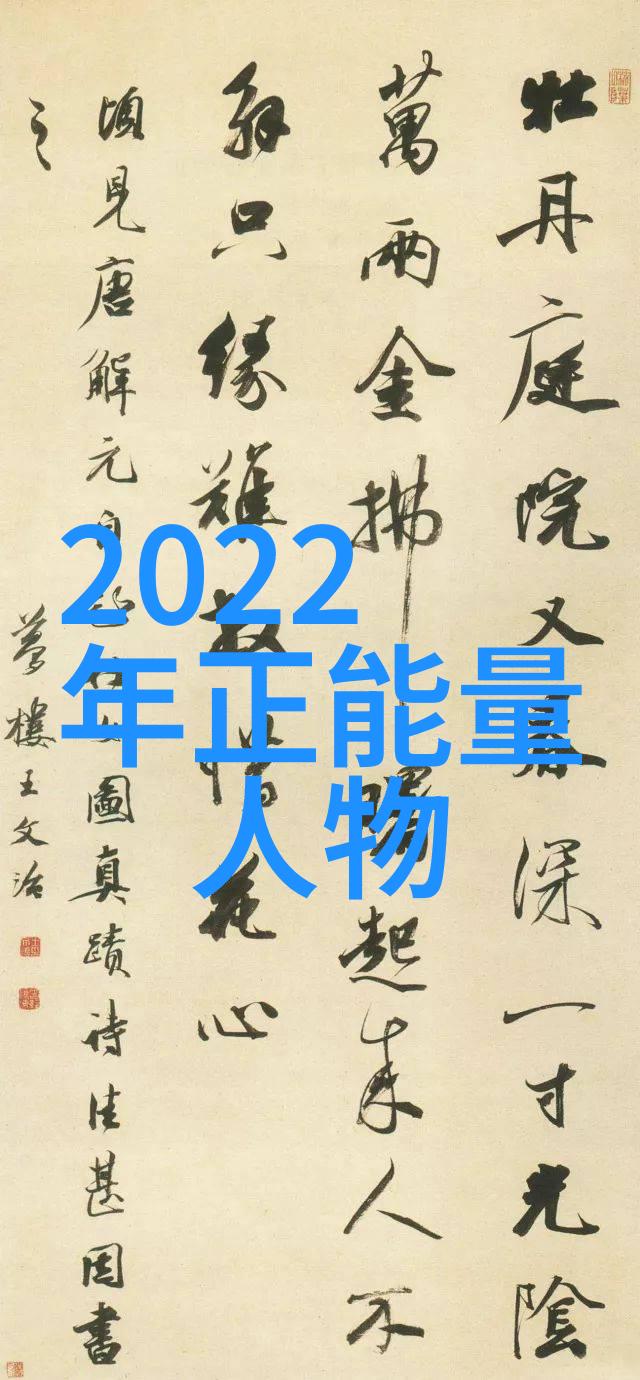 牡丹庭院又春深一寸光陰
萬兩金拂曙起來人不
解只緣難放惜花心
頃見唐解元圖真蹟詩佳甚因書
之
夢樓王文治
2022
年正能量
人物